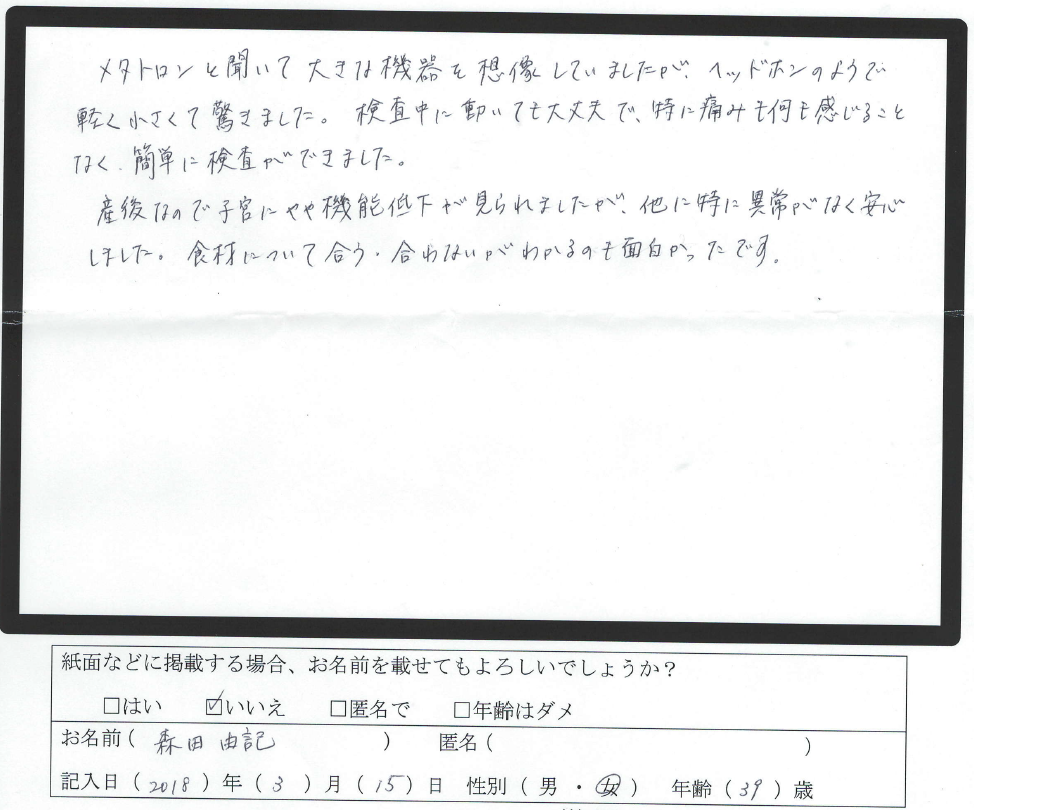 メタトロンと聞いて大きな機器を想像していましたが、ヘッドホンのようで
軽く小さくて驚きました。検査中に動いても大丈夫で、特に痛みも何も感じること
なく、簡単に検査ができました。
産後なので子宮にやや機能低下が見られましたが、他に特に異常がなく安心
しました。食材について合う・合わないがわかるのも面白かったです。
紙面などに掲載する場合、お名前を載せてもよろしいでしょうか？
□はい ☑いいえ □匿名で □年齢はダメ
お名前( 森田 由記 ) 匿名( )
記入日( 2018 )年( 3 )月( 15 )日 性別( 男 ・ 女 ) 年齢( 39 )歳